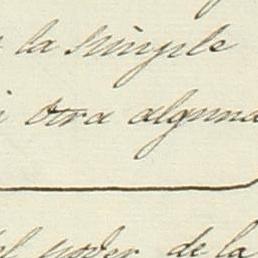 la simple
otra alguna
poder de la